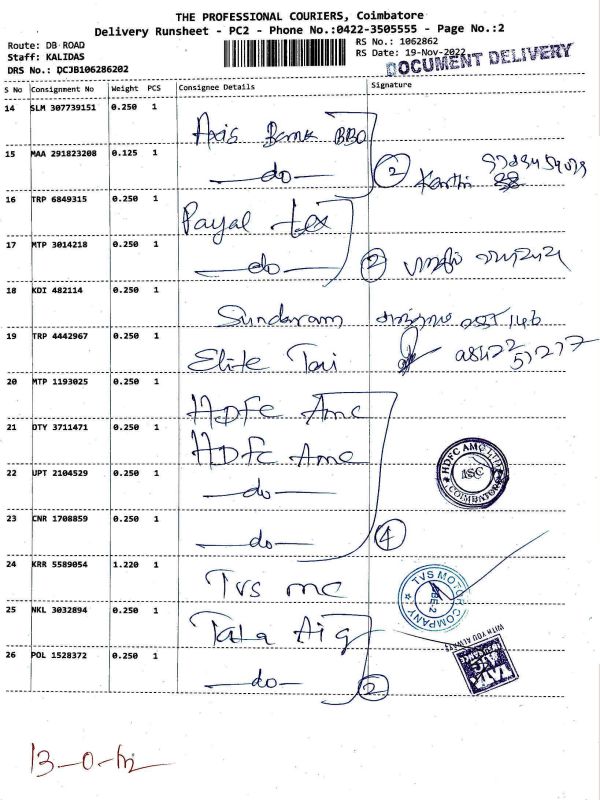 THE PROFESSIONAL COURIERS, Coimbatore
Delivery Runsheet - PC2 - Phone No.:0422-3505555 - Page No.:2
Route: DB ROAD
Staff: KALIDAS
DRS No.: DCJB106286202
RS No.: 1062862
RS Date: 19-Nov-2022
DOCUMENT DELIVERY
S No Consignment No Weight PCS Consignee Details Signature
14 SLM 307739151 0.250 1 Axis Bank BBO
15 MAA 291823208 0.125 1 —do— 2 Karthi
16 TRP 6849315 0.250 1 Payal tex
17 MTP 3014218 0.250 1 —do— 2
18 KDI 482114 0.250 1 Sundaram
19 TRP 4442967 0.250 1 Elite Tari
20 MTP 1193025 0.250 1 HDFC Amc
21 DTY 3711471 0.250 1 HDFC Amc
22 UPT 2104529 0.250 1 —do—
HDFC AMC LTD
ISC
COIMBATORE
23 CNR 1708859 0.250 1 —do— 4
24 KRR 5589054 1.220 1 TVS mc
TVS MOTOR COMPANY
25 NKL 3032894 0.250 1 Tata Aig
WITH YOU ALWAYS
26 POL 1528372 0.250 1 —do— 2